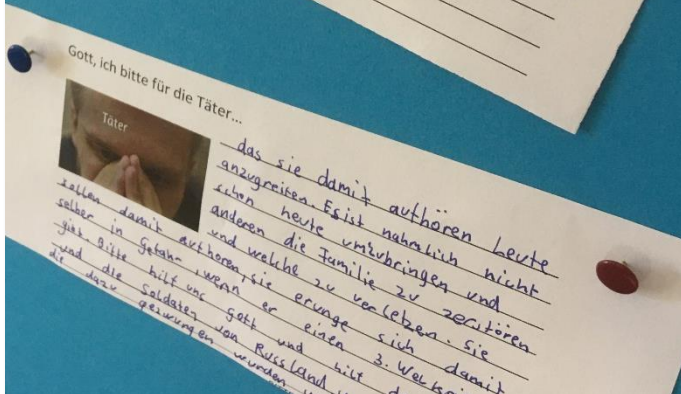 Gott, ich bitte für die Täter...
Täter
das sie damit aufhören Leute
anzugreifen. Es ist nahmlich nicht
schön Leute umzubringen und
anderen die Familie zu zerstören
und welche zu verletzen. Sie
sollen damit aufhören, sie sich damit
selber in Gefahr, wenn er einen 3.
gibt. Bitte hilf uns gott und hilf
und die Soldaten von Russland
die dazu gezwungen wurden